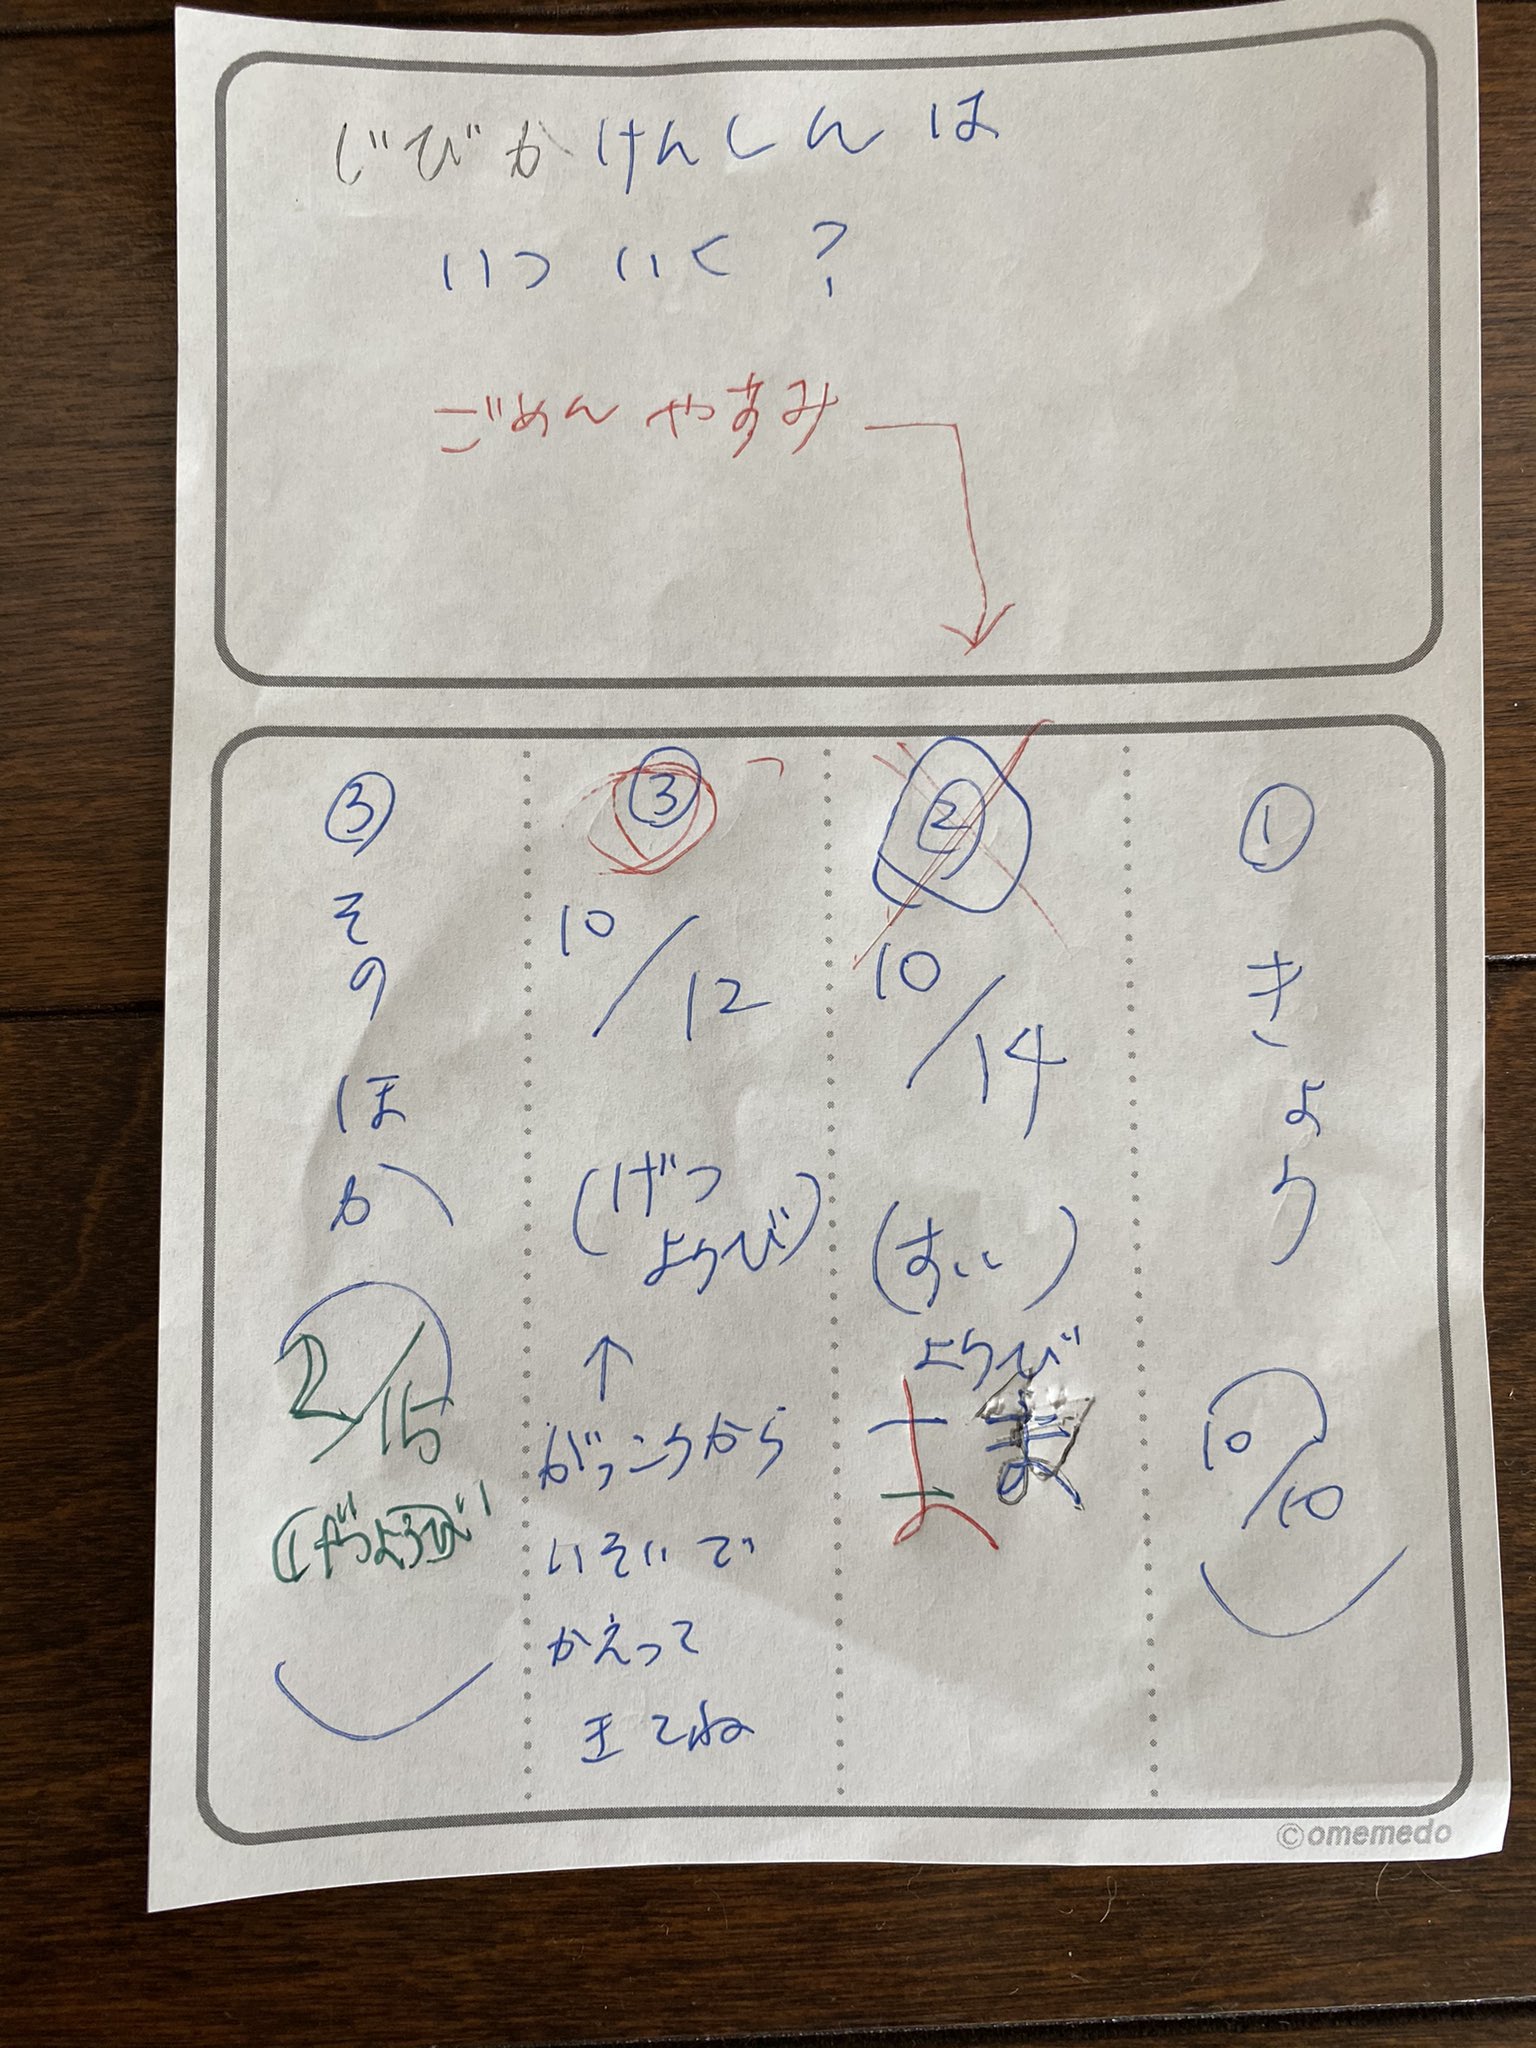 じびかけんしんは
いついく？
ごめんやすみ
①
きょう
10/10
②
10/14
(すい)
ようび
ま
ま
③
10/12
(げつ
ようび)
↑
がっこうから
いそいで
かえって
きてね
③
そのほか
2/15
(げつようび)
©omemedo